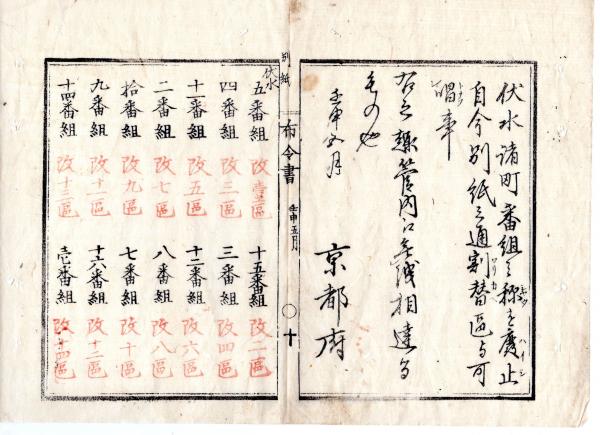 伏水諸町番組之称を廃止
自今別紙之通割替區与可
唱事
右之趣管内江無洩相達る
もの也
壬申五月
京都府
別紙
布令書
壬申五月
〇十
伏水
五番組 改壹區
四番組 改三區
十一番組 改五區
二番組 改七區
拾番組 改九區
九番組 改十一區
十四番組 改十三區
十五番組 改二區
三番組 改四區
十二番組 改六區
八番組 改八區
七番組 改十區
十六番組 改十二區
壱番組 改十四區